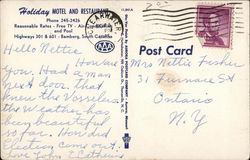 Holiday MOTEL AND RESTAURANT
Phone 245-2426
Reasonable Rates - Free TV - Air
and Pool
Highways 301 & 601 - Bamberg, South Carolina
AAA
Post Card
Hello Nettie
How are
you. Had a man
next door that
knew the
the Weather has
been beautiful
so far. How did
Election come out.
Love John & Catherine
Mrs Nettie Fisher
31 Furnace St
Ontario
N.Y